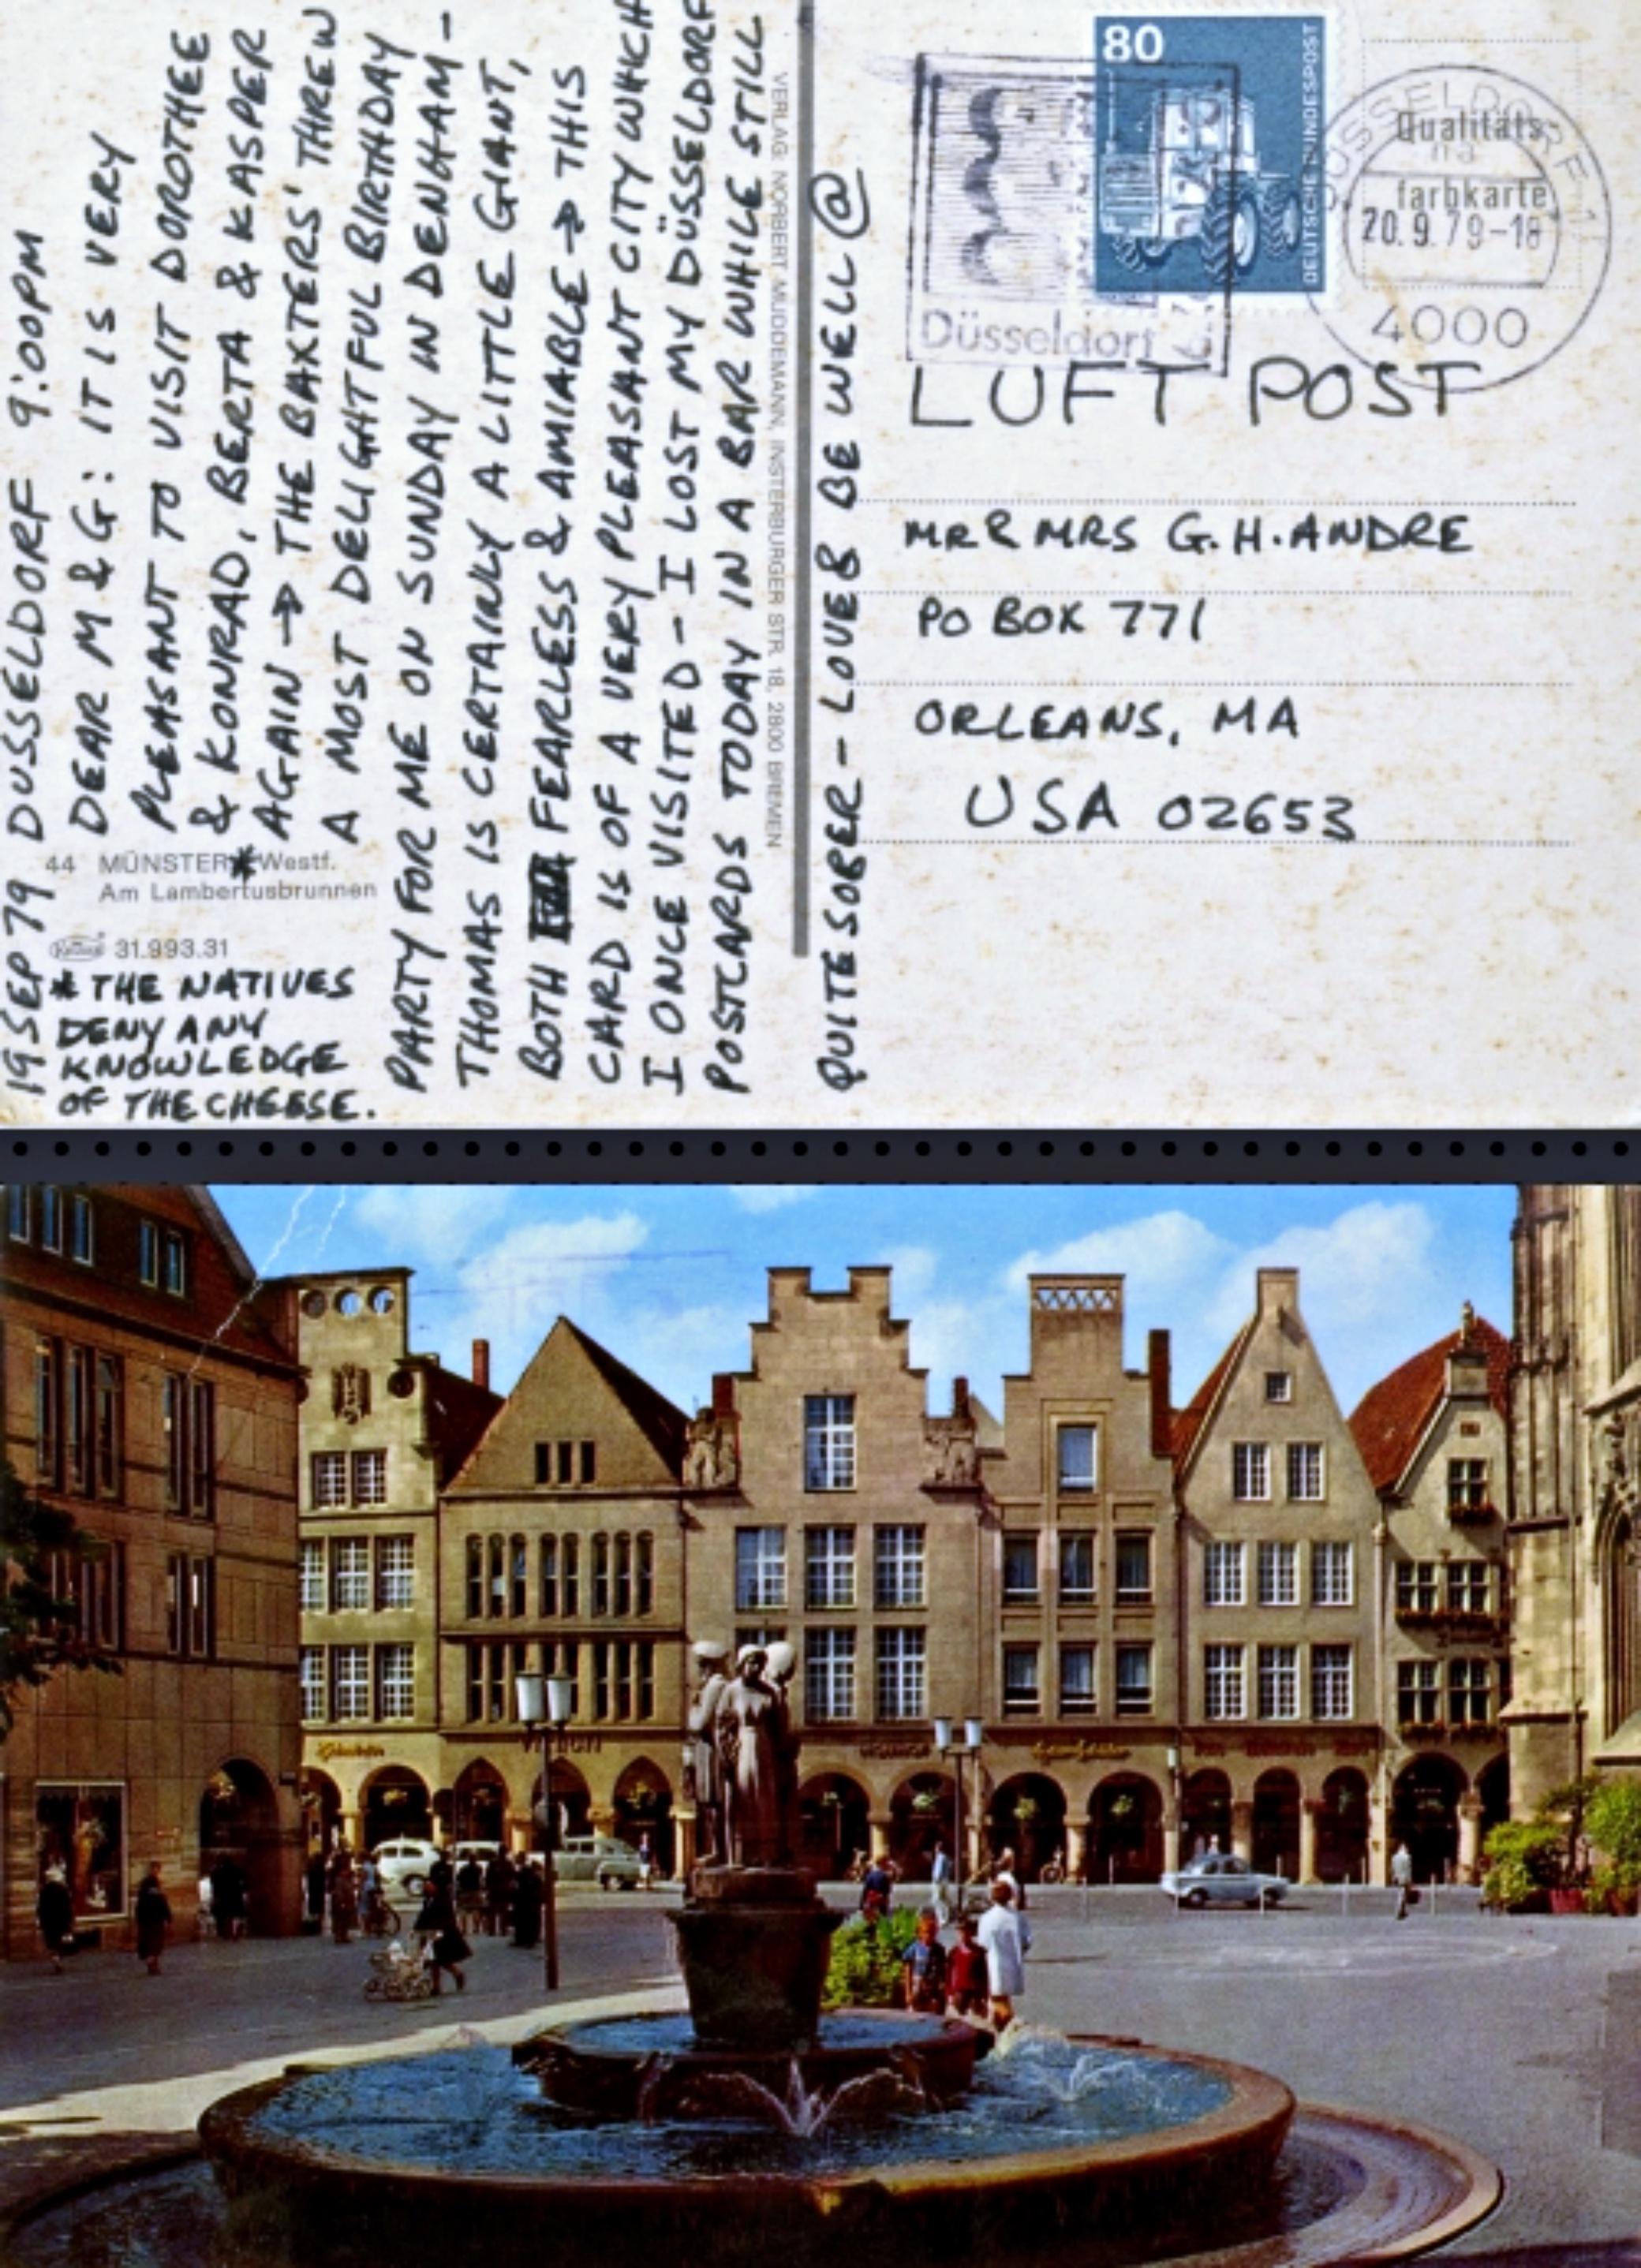 19 SEP 79 DUSSELDORF 9:00PM
DEAR M & G: IT IS VERY
PLEASANT TO VISIT DOROTHEE
& KONRAD, BERTA & KASPER
AGAIN → THE BAXTERS' THREW
A MOST DELIGHTFUL BIRTHDAY
PARTY FOR ME ON SUNDAY IN DENHAM -
THOMAS IS CERTAINLY A LITTLE GIANT,
BOTH FEARLESS & AMIABLE → THIS
CARD IS OF A VERY PLEASANT CITY WHICH
I ONCE VISITED - I LOST MY DÜSSELDORF
POSTCARDS TODAY IN A BAR WHILE STILL
QUITE SOBER - LOVE & BE WELL @
44 MÜNSTER * Westf.
Am Lambertusbrunnen
31.993.31
* THE NATIVES
DENY ANY
KNOWLEDGE
OF THE CHEESE.
VERLAG NORBERT MÜDDEMANN, INSTERBURGER STR. 18, 2800 BREMEN
80
DEUTSCHE BUNDESPOST
Düsseldorf
DÜSSELDORF 1
Qualitäts-
farbkarte
20.9.79-18
4000
LUFT POST
MR & MRS G.H. ANDRE
PO BOX 771
ORLEANS, MA
USA 02653